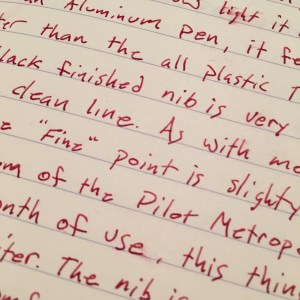 light it
Aluminum pen, it fe
ter than the all plastic T
lack finished nib is very
clean line. As with mo
"Fine" point is slighty
m of the Pilot Metrop
onth of use, this thin
ter. The nib is